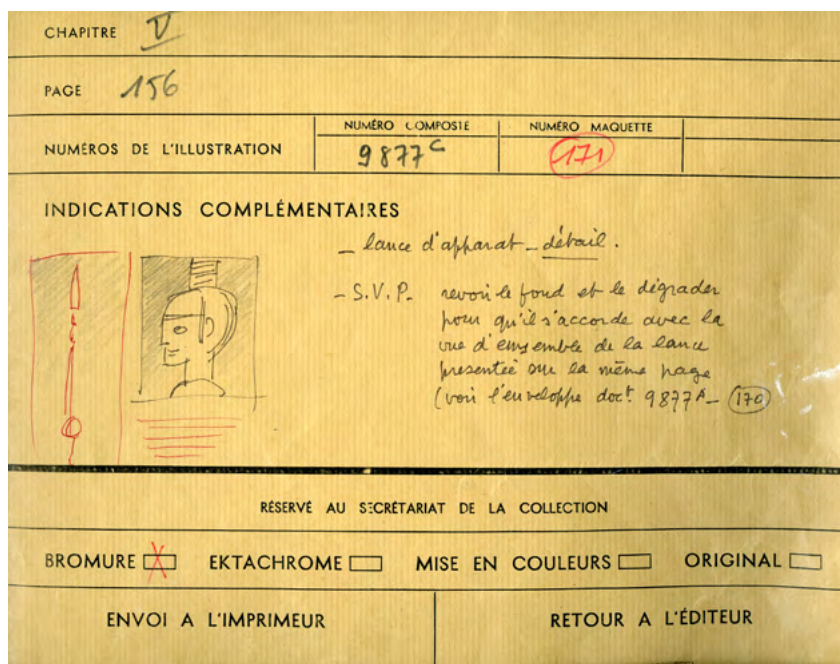 CHAPITRE V
PAGE 156
NUMÉRO COMPOSTE NUMÉRO MAQUETTE
NUMÉROS DE L'ILLUSTRATION 9877 C 171
INDICATIONS COMPLÉMENTAIRES
_ lance d'apparat _ détail.
- S.V.P. revoir le fond et le dégrader
pour qu'il s'accorde avec la
vue d'ensemble de la lance
presentée sur la même page
(voir l'enveloppe doct. 9877 A _ 170
RÉSERVÉ AU SECRÉTARIAT DE LA COLLECTION
BROMURE EKTACHROME MISE EN COULEURS ORIGINAL
ENVOI A L'IMPRIMEUR RETOUR A L'ÉDITEUR